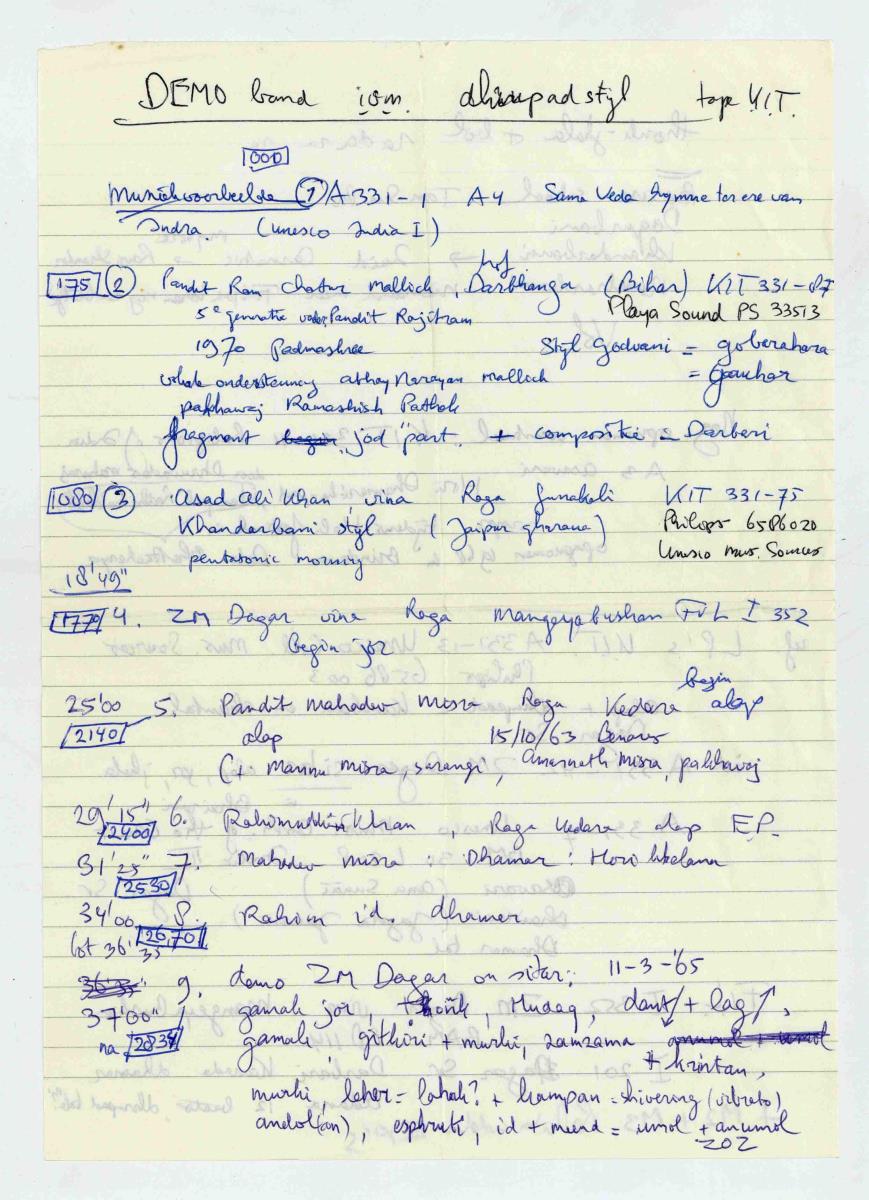 DEMO band i.v.m. dhrupad styl tape KIT.
000
Muziekvoorbeelde 1 A 331-1 A4 Sama Veda hymne ter ere van
Indra. (Unesco India I)
175 2 Pandit Ram Chatur Mallich, Darbhanga (Bihar) KIT 331-87
hof
5e generatie vader Pandit Rajitram Playa Sound PS 33513
1970 Padmashree Styl Godvani = goberahara
vokale ondersteuning abhay Narayan mallich = Gauhar
pakhawaj Ramashish Pathak
fragment jod part. + compositie = Darbari
1080 3 Asad Ali Khan, vina Raga Gunakali KIT 331-75
Khandarbani styl (Jaipur gharana) Philips 6586020
pentatonic morning Unesco mus. Sources
18'49"
1770 4. ZM Dagar vina Raga Mangeyabushan FVL I 352
begin jor
25'00 5. Pandit Mahadev Misra Raga Kedara begin alap
2140 alap 15/10/63 Benares
(+ Mannu misra, sarangi, Amarnath Misra, pakhavaj
29'15" 6. Rahimuddin Khan, Raga Kedara alap E.P.
2400
31'25" 7. Mahadev Misra : Dhamar : Hori
2530
34'00 8. Rahim id. dhamar
tot 36'35 2670
36'35 9. demo ZM Dagar on sitar; 11-3-'65
37'00" gamak jor, thonk, Hudaq, dant + lag,
na 2834 gamak, gitkiri + murki, zamzama
+ krintan,
murki, leher = lahak? + kampan = shivering (vibrato)
andol(an), esphruti, id + meend = umol + anumol
202